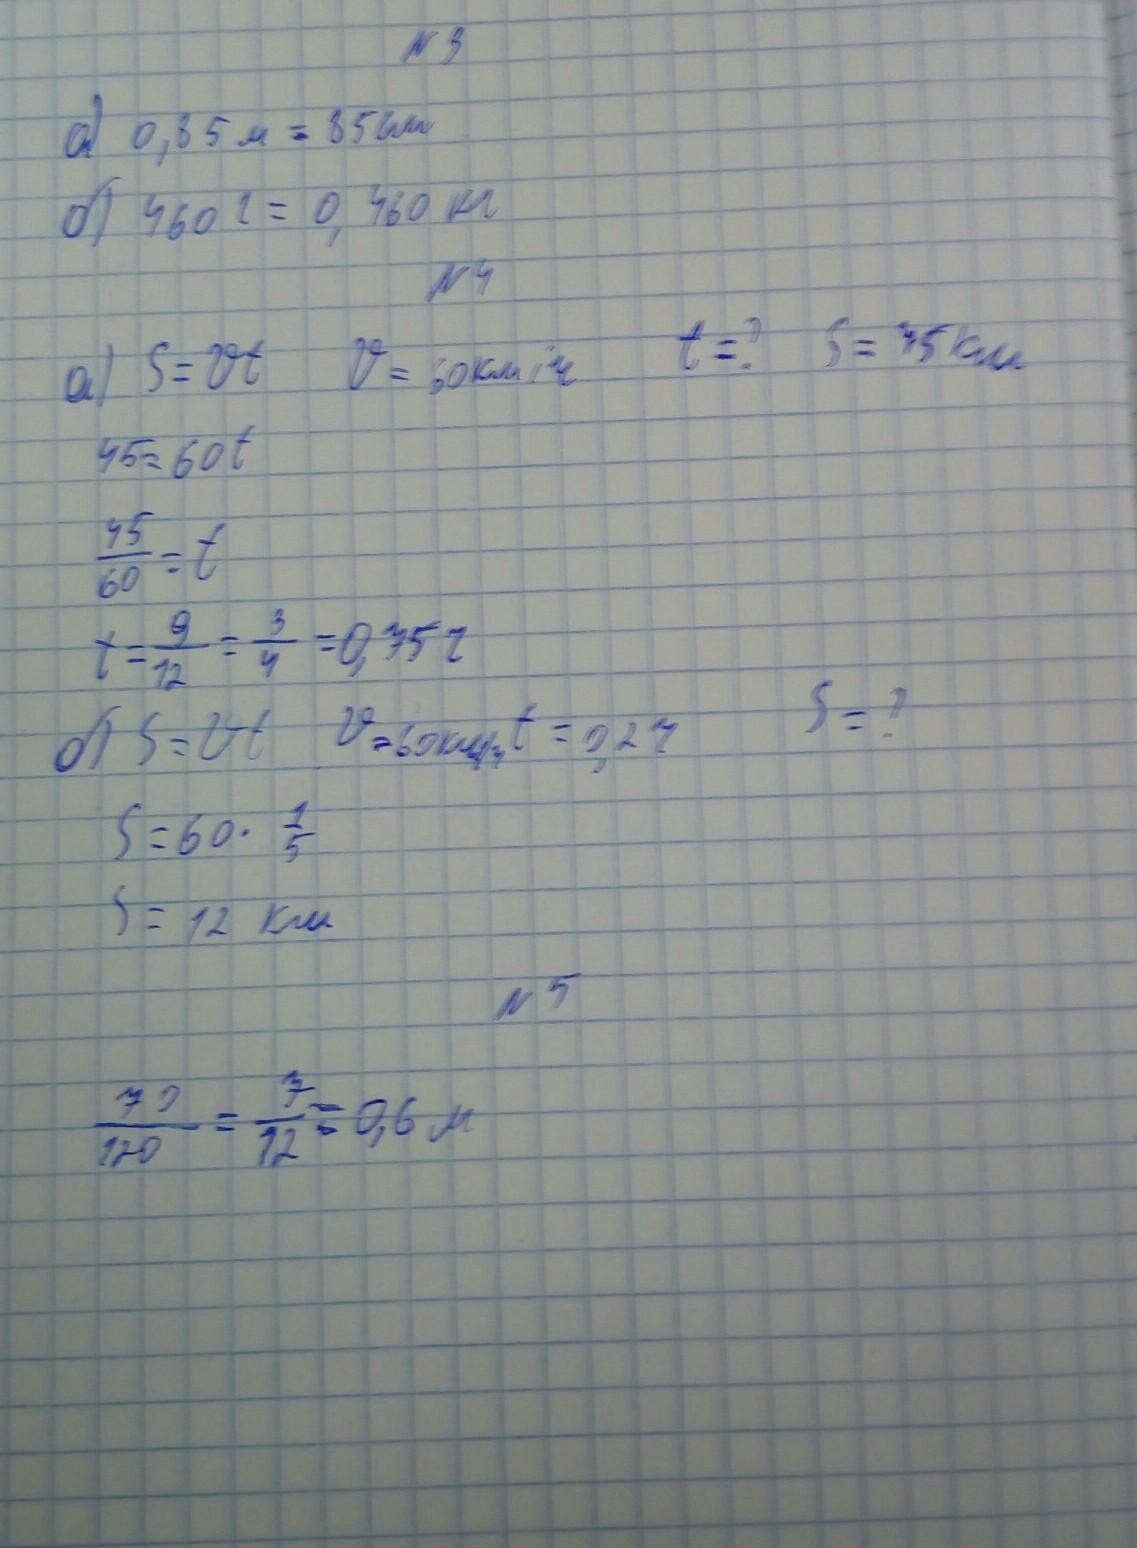 N 3
а) 0,85 м = 85 см
б) 460 г = 0,460 кг
N 4
а) S = vt v = 60 км/ч t = ? S = 45 км
45 = 60t
45/60 = t
t = 9/12 = 3/4 = 0,75 ч
б) S = vt v = 60 км/ч t = 0,2 ч S = ?
S = 60 · 1/5
S = 12 км
N 5
70/120 = 7/12 ≈ 0,6 м